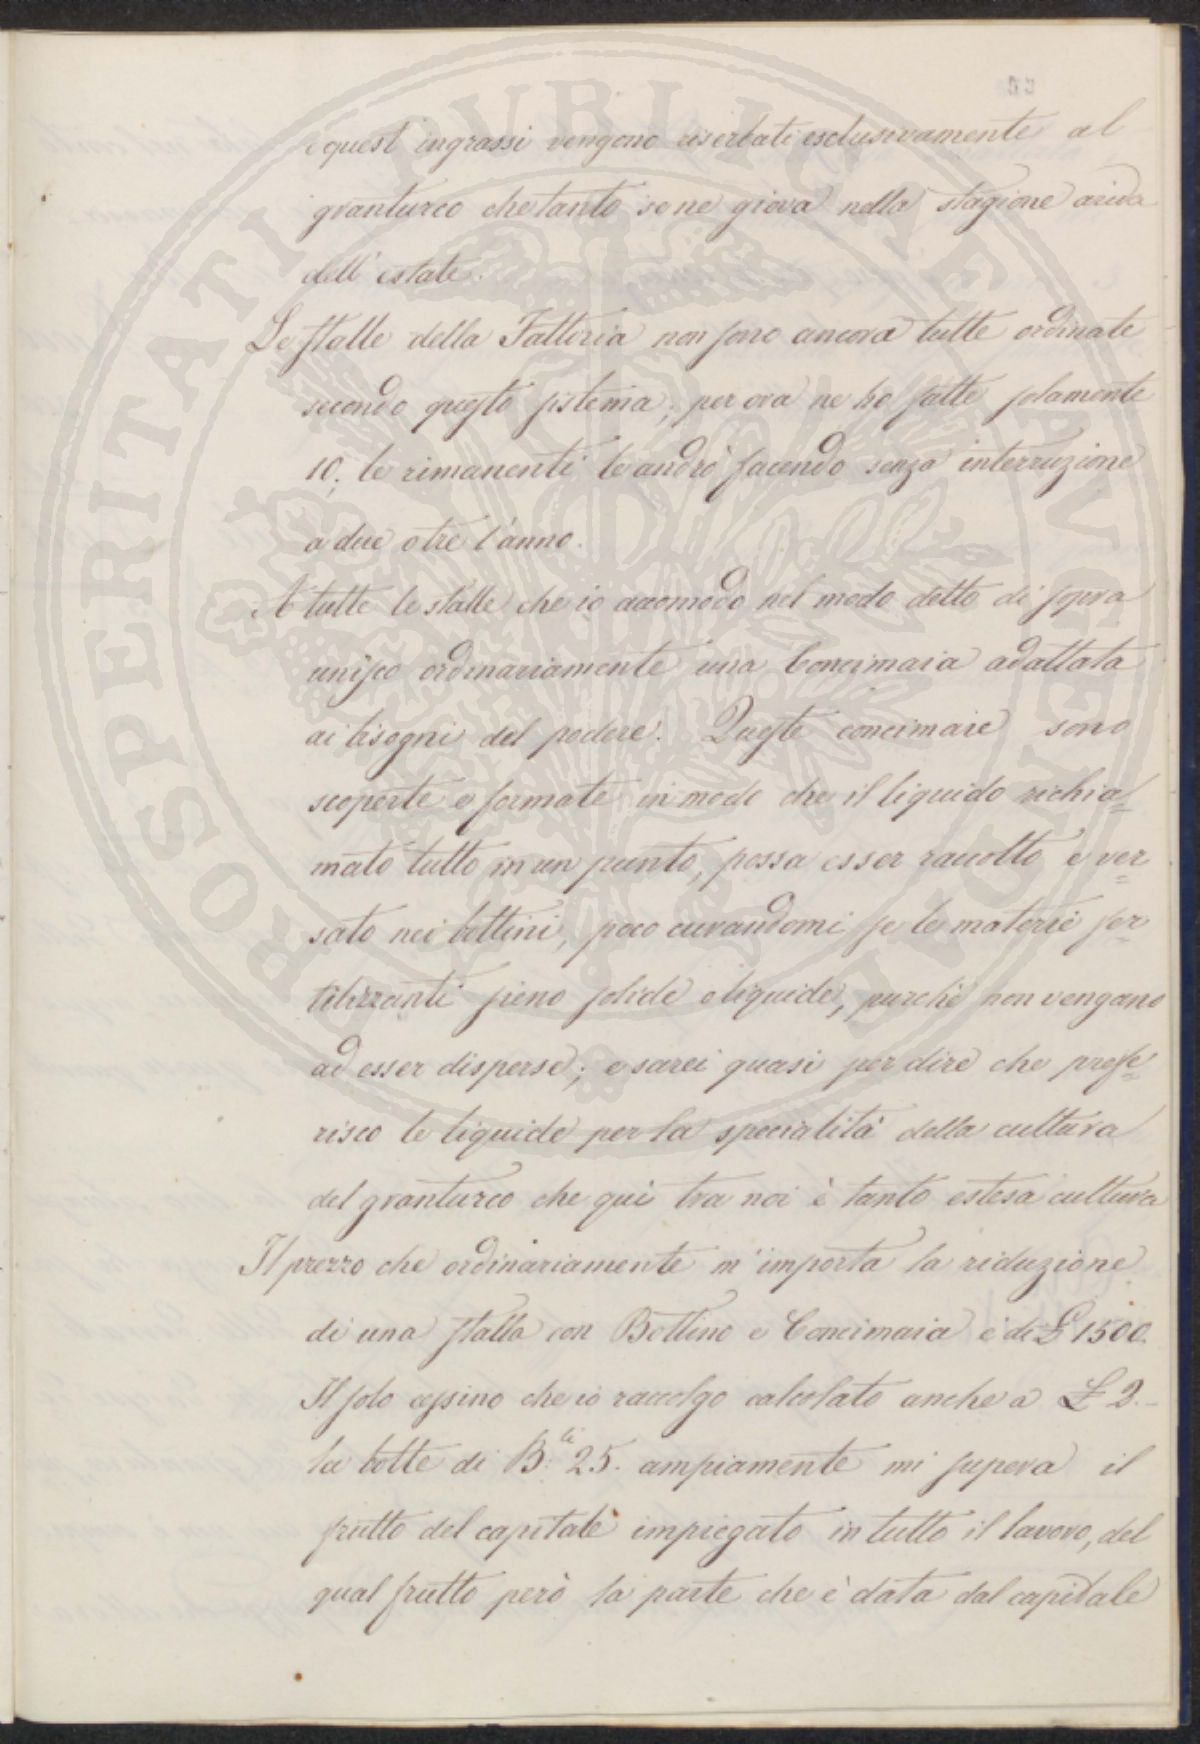 e quest' ingrassi vengono riserbati esclusivamente al
granturco che tanto se ne giova nella stagione arida
dell' estate.
Le stalle della Fattoria non sono ancora tutte ordinate
secondo questo sistema; per ora ne ho fatte solamente
10; le rimanenti le andrò facendo senza interruzione
a due o tre l'anno.
A tutte le stalle che io accomodo nel modo detto di sopra
unisco ordinariamente una Concimaia adattata
ai bisogni del podere. Queste concimaie sono
scoperte e formate in modo che il liquido richia=
mato tutto in un punto, possa esser raccolto e ver=
sato nei bottini, poco curandomi se le materie fer=
tilizzanti sieno solide o liquide, purchè non vengano
ad esser disperse; e sarei quasi per dire che prefe=
risco le liquide per la specialità della cultura
del granturco che quì tra noi è tanto estesa cultura
Il prezzo che ordinariamente m' importa la riduzione
di una stalla con Bottino e Concimaia è di £ 1500.
Il solo cessino che io raccolgo calcolato anche a £ 2.-
la botte di B:li 25. ampiamente mi supera il
frutto del capitale impiegato in tutto il lavoro, del
qual frutto però la parte che è data dal capitale
PROSPERITATI PUBLICAE AUGENDAE